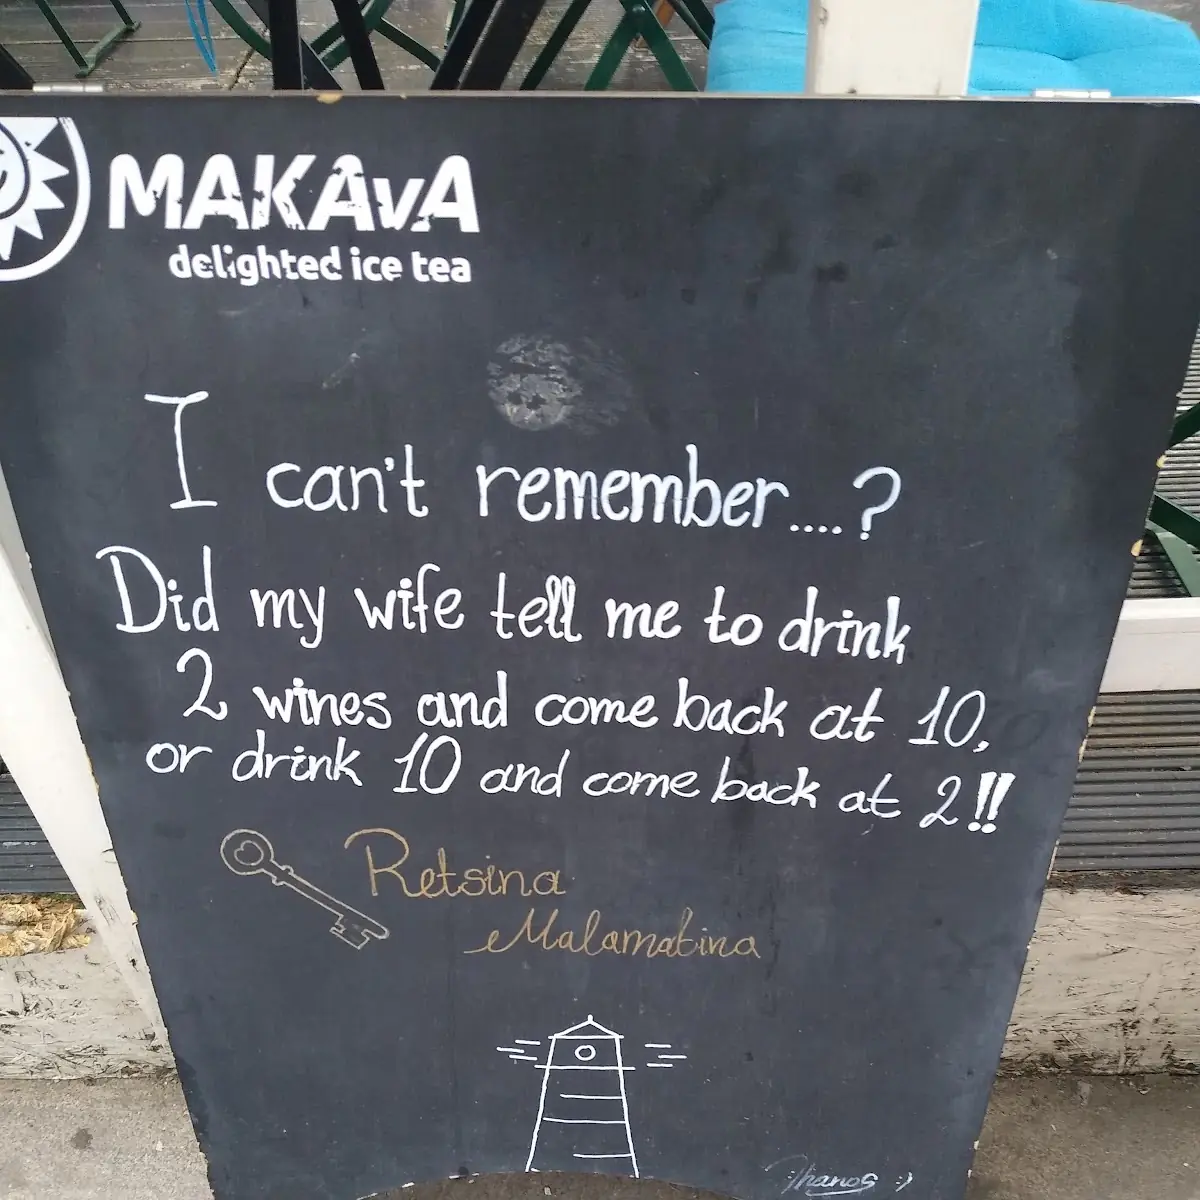 MAKAvA
delighted ice tea
I can't remember....?
Did my wife tell me to drink
2 wines and come back at 10,
or drink 10 and come back at 2!!
Retsina
Malamatina
Thanos :)